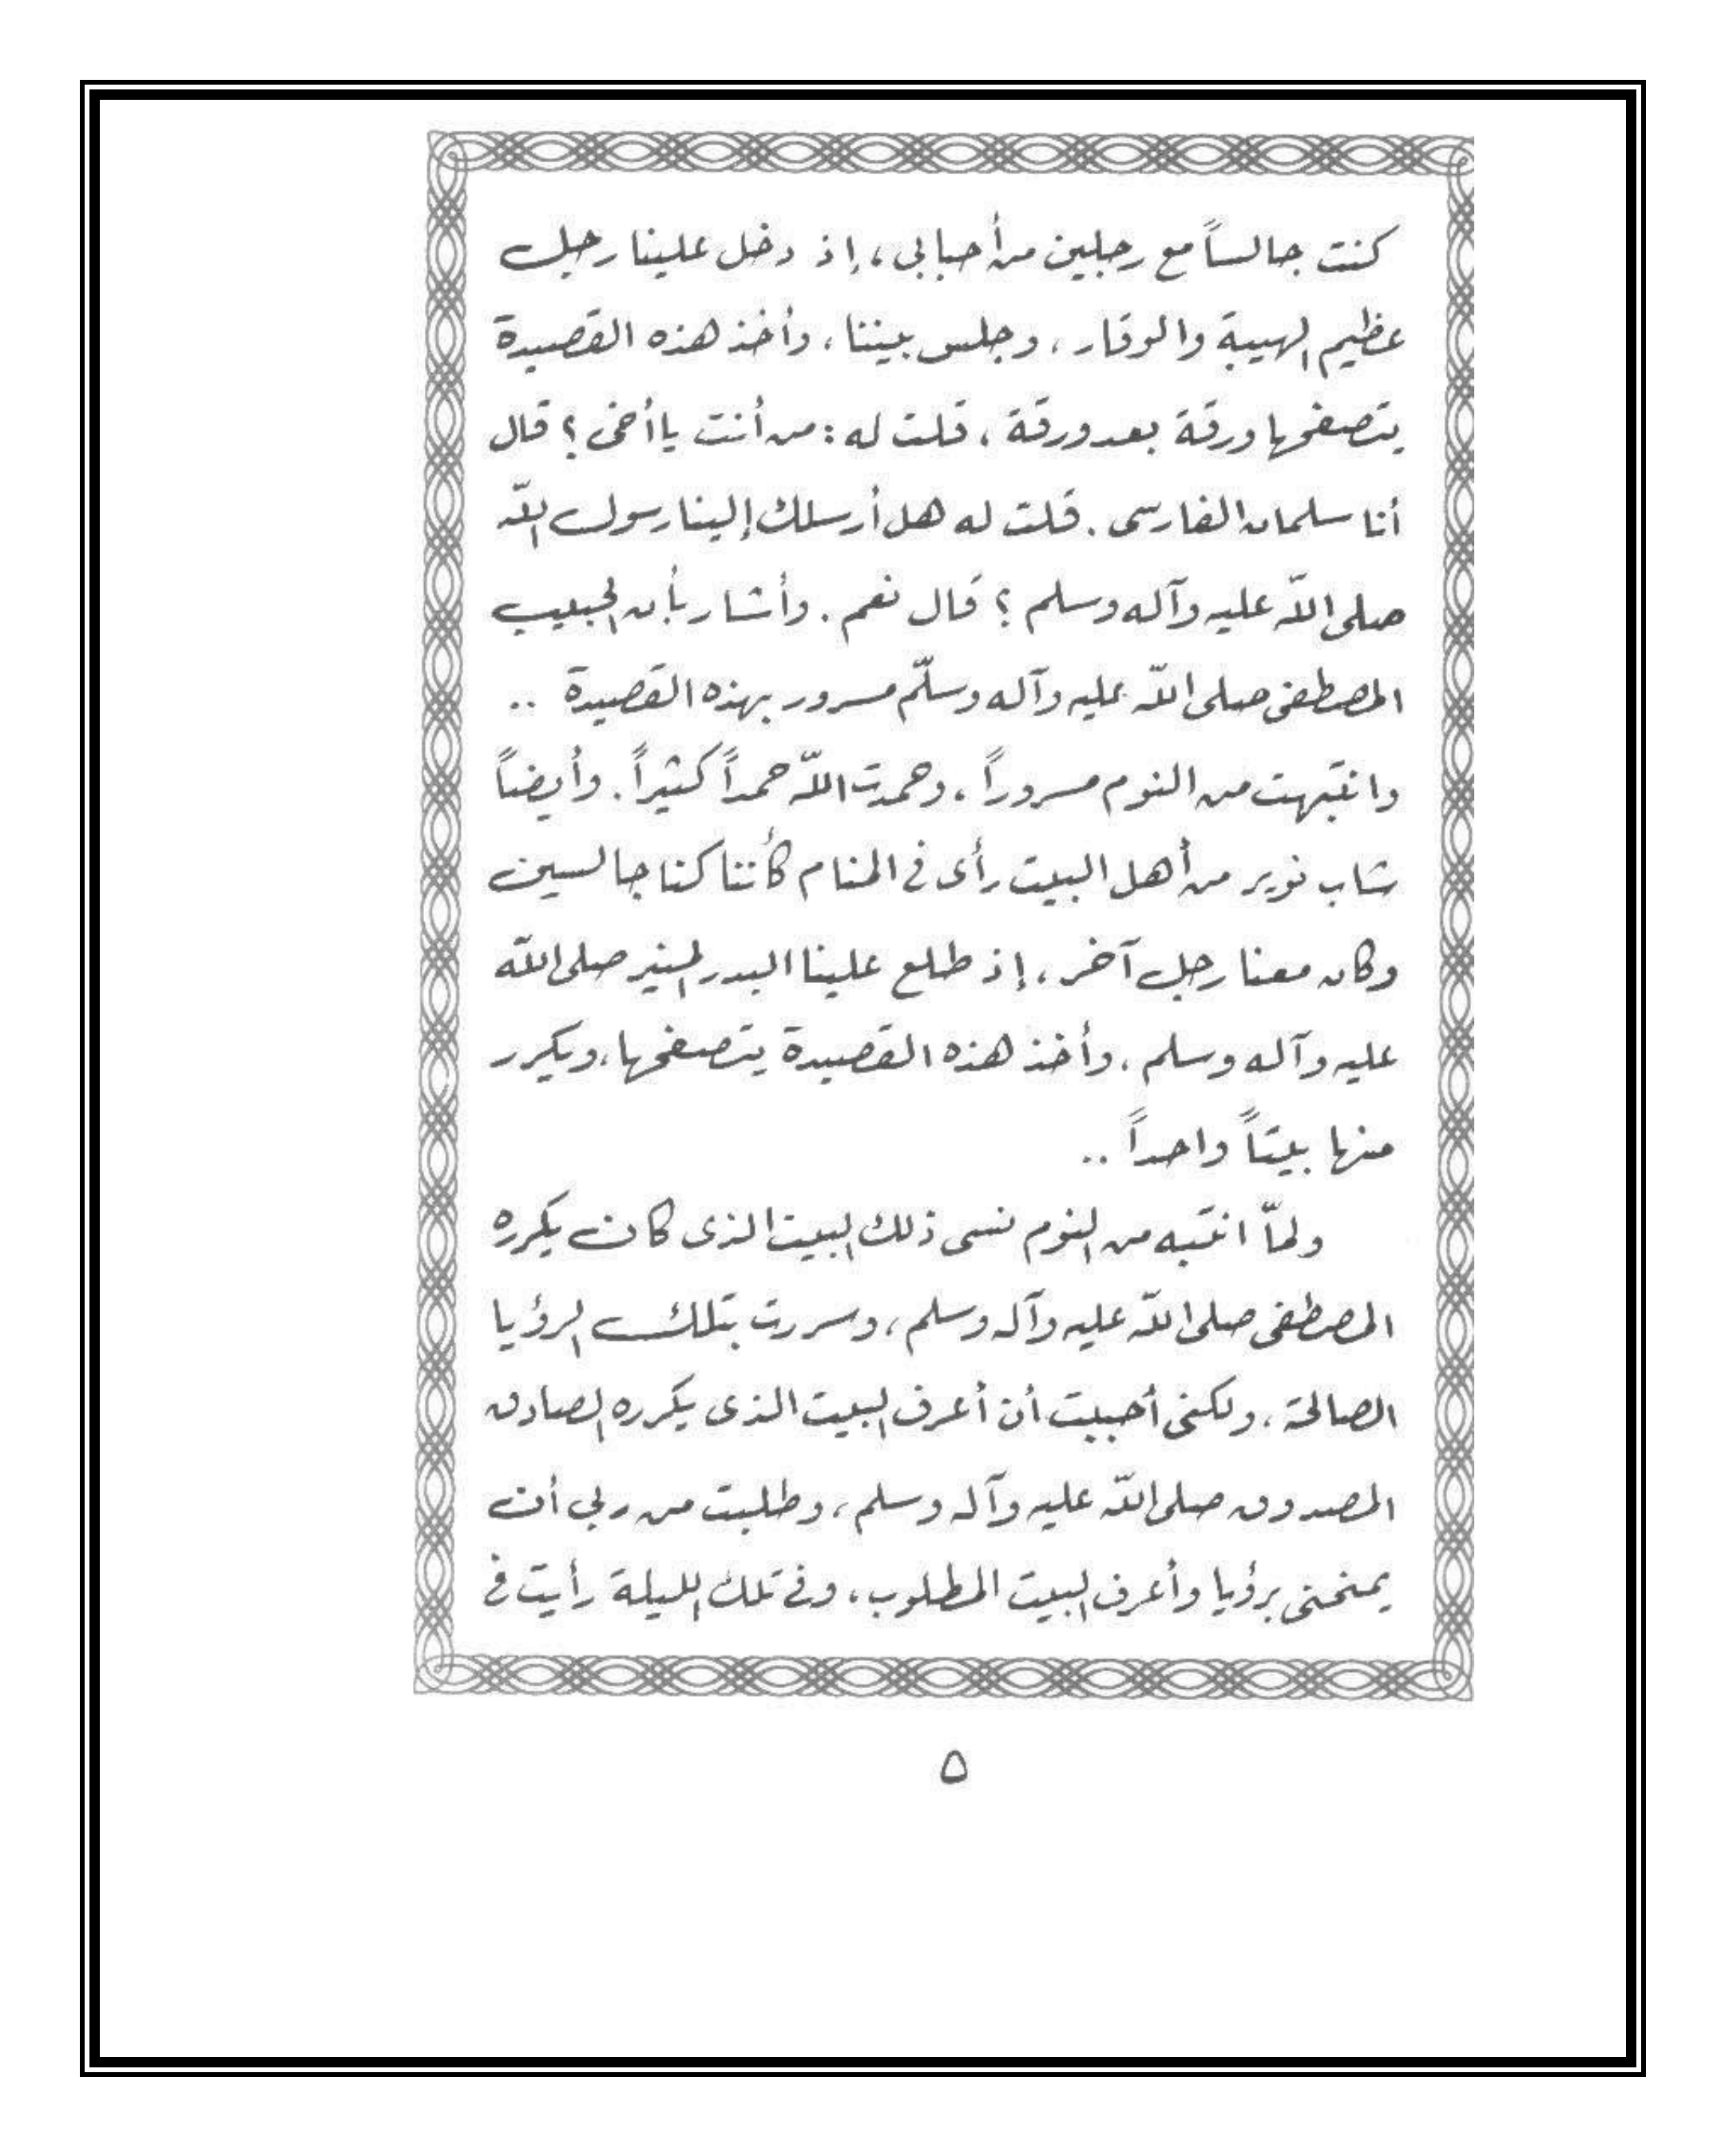 كنت جالساً مع رجلين من أحبابي ، إذ دخل علينا رجل
عظيم الهيبة والوقار ، وجلس بيننا ، وأخذ هذه القصيدة
يتصفحها ورقة بعد ورقة ، قلت له : من أنت يا أخى ؟ قال
أنا سلمان الفارسى . قلت له هل أرسلك إلينا رسول اللّه
صلى اللّه عليه وآله وسلم ؟ قال نعم . وأشار بأن الحبيب
المصطفى صلى اللّه عليه وآله وسلّم مسرور بهذه القصيدة ..
وانتبهت من النوم مسروراً ، وحمدت اللّه حمداً كثيراً . وأيضاً
شاب نوير من أهل البيت رأى فى المنام كأننا كنا جالسين
وكان معنا رجل آخر ، إذ طلع علينا البدر المنير صلى اللّه
عليه وآله وسلم ، وأخذ هذه القصيدة يتصفحها ، ويكرر
منها بيتاً واحداً ..
ولمّا انتبه من النوم نسى ذلك البيت الذى كان يكرره
المصطفى صلى اللّه عليه وآله وسلم ، وسررت بتلك الرؤيا
الصالحة ، ولكنى أحببت أن أعرف البيت الذى يكرره الصادق
المصدوق صلى اللّه عليه وآله وسلم ، وطلبت من ربي أن
يمنحنى برؤيا وأعرف البيت المطلوب ، وفى تلك الليلة رأيت فى
٥